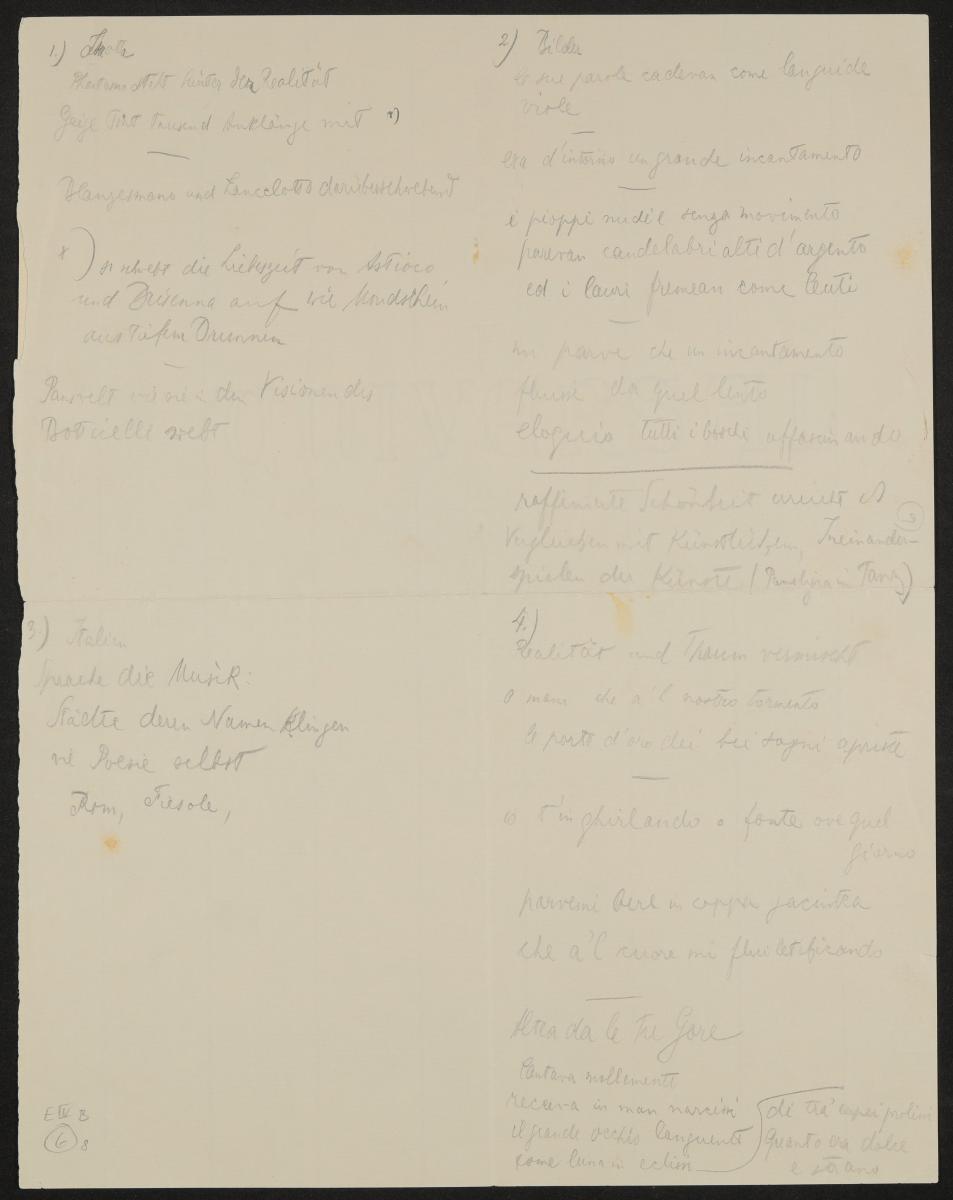 1.)
Phantasma steht hinter der Realität
Geige tönt tausend Anklänge mit x)
und Lancelotto darüberschwebend
x) so schwebt die Liebeszeit von
und Brisenna auf wie Mondschein
aus tiefem Brunnen
wie sie in den Visionen des
Botticelli webt
2) Bilder
le sue parole cadevan come languide
viole
era d'intorno un grande incantamento
i pioppi nudi e senza movimento
parevan candelabri alti d'argento
ed i lauri fremean come leuti
mi parve che un incantamento
fluisse da quel lento
eloquio tutti i boschi affascinando
raffinierte Schönheit erreicht
Vergleichen mit Künstlichem, Ineinander-
spielen der Künste
3.) Italien
Sprache die Musik:
Städte deren Namen klingen
wie Poesie selbst
Rom, Fiesole,
4.)
Realität und Traum vermischt
o mani che a'l nostro tormento
le porte d'oro dei bei sogni apriste
io t'inghirlando o fonte ove quel
giorno
parvemi bere in coppa jacintea
che a'l cuore mi fluì letificando
da le tre Gore
Cantava mollemente
recava in man narcisi
il grande occhio languente
come luna in eclissi
di tra' capei prolissi
Quanto era dolce
e strano
E IV B
6 8